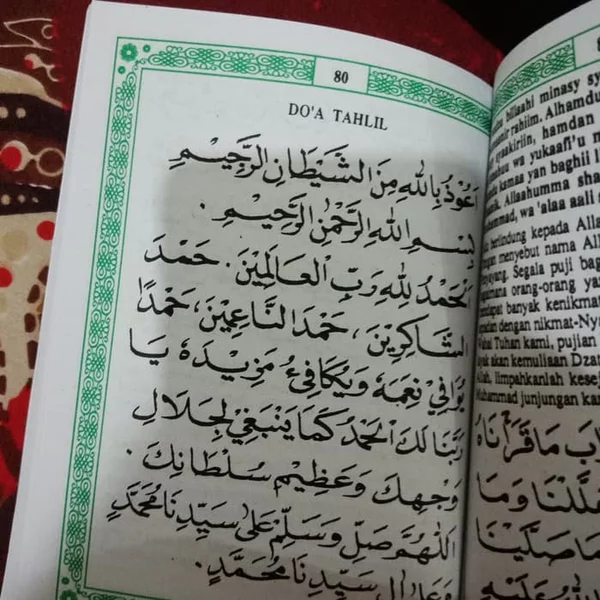 80
DO'A TAHLIL
اَعُوْذُ بِاللهِ مِنَ الشَّيْطَانِ الرَّجِيْمِ
بِسْمِ اللهِ الرَّحْمٰنِ الرَّحِيْمِ .
اَلْحَمْدُ لِلّٰهِ رَبِّ الْعَالَمِيْنَ . حَمْدَ
الشَّاكِرِيْنَ ، حَمْدَ النَّاعِمِيْنَ ، حَمْدًا
يُوَافِيْ نِعَمَهُ وَيُكَافِئُ مَزِيْدَهُ يَا
رَبَّنَا لَكَ الْحَمْدُ كَمَا يَنْبَغِيْ لِجَلَالِ
وَجْهِكَ وَعَظِيْمِ سُلْطَانِكَ .
اَللّٰهُمَّ صَلِّ وَسَلِّمْ عَلٰى سَيِّدِنَا مُحَمَّدٍ
وَعَلٰى اٰلِ سَيِّدِنَا مُحَمَّدٍ .
billaahi minasy
rahiim. Alhamdu
syaakiriin, hamdan
wa yukaafi'u
kamaa yan baghii
Allaahumma sha
wa 'alaa aali
berlindung kepada Alla
menyebut nama Alla
Segala puji bag
orang-orang ya
banyak kenikmat
dengan nikmat-Nya
Tuhan kami, pujian
akan kemuliaan Dzat
limpahkanlah kesej
Muhammad junjungan kam
مَا قَرَأْنَاهُ
وَمَا
مَا صَلَّيْنَا
عَلَيْهِ